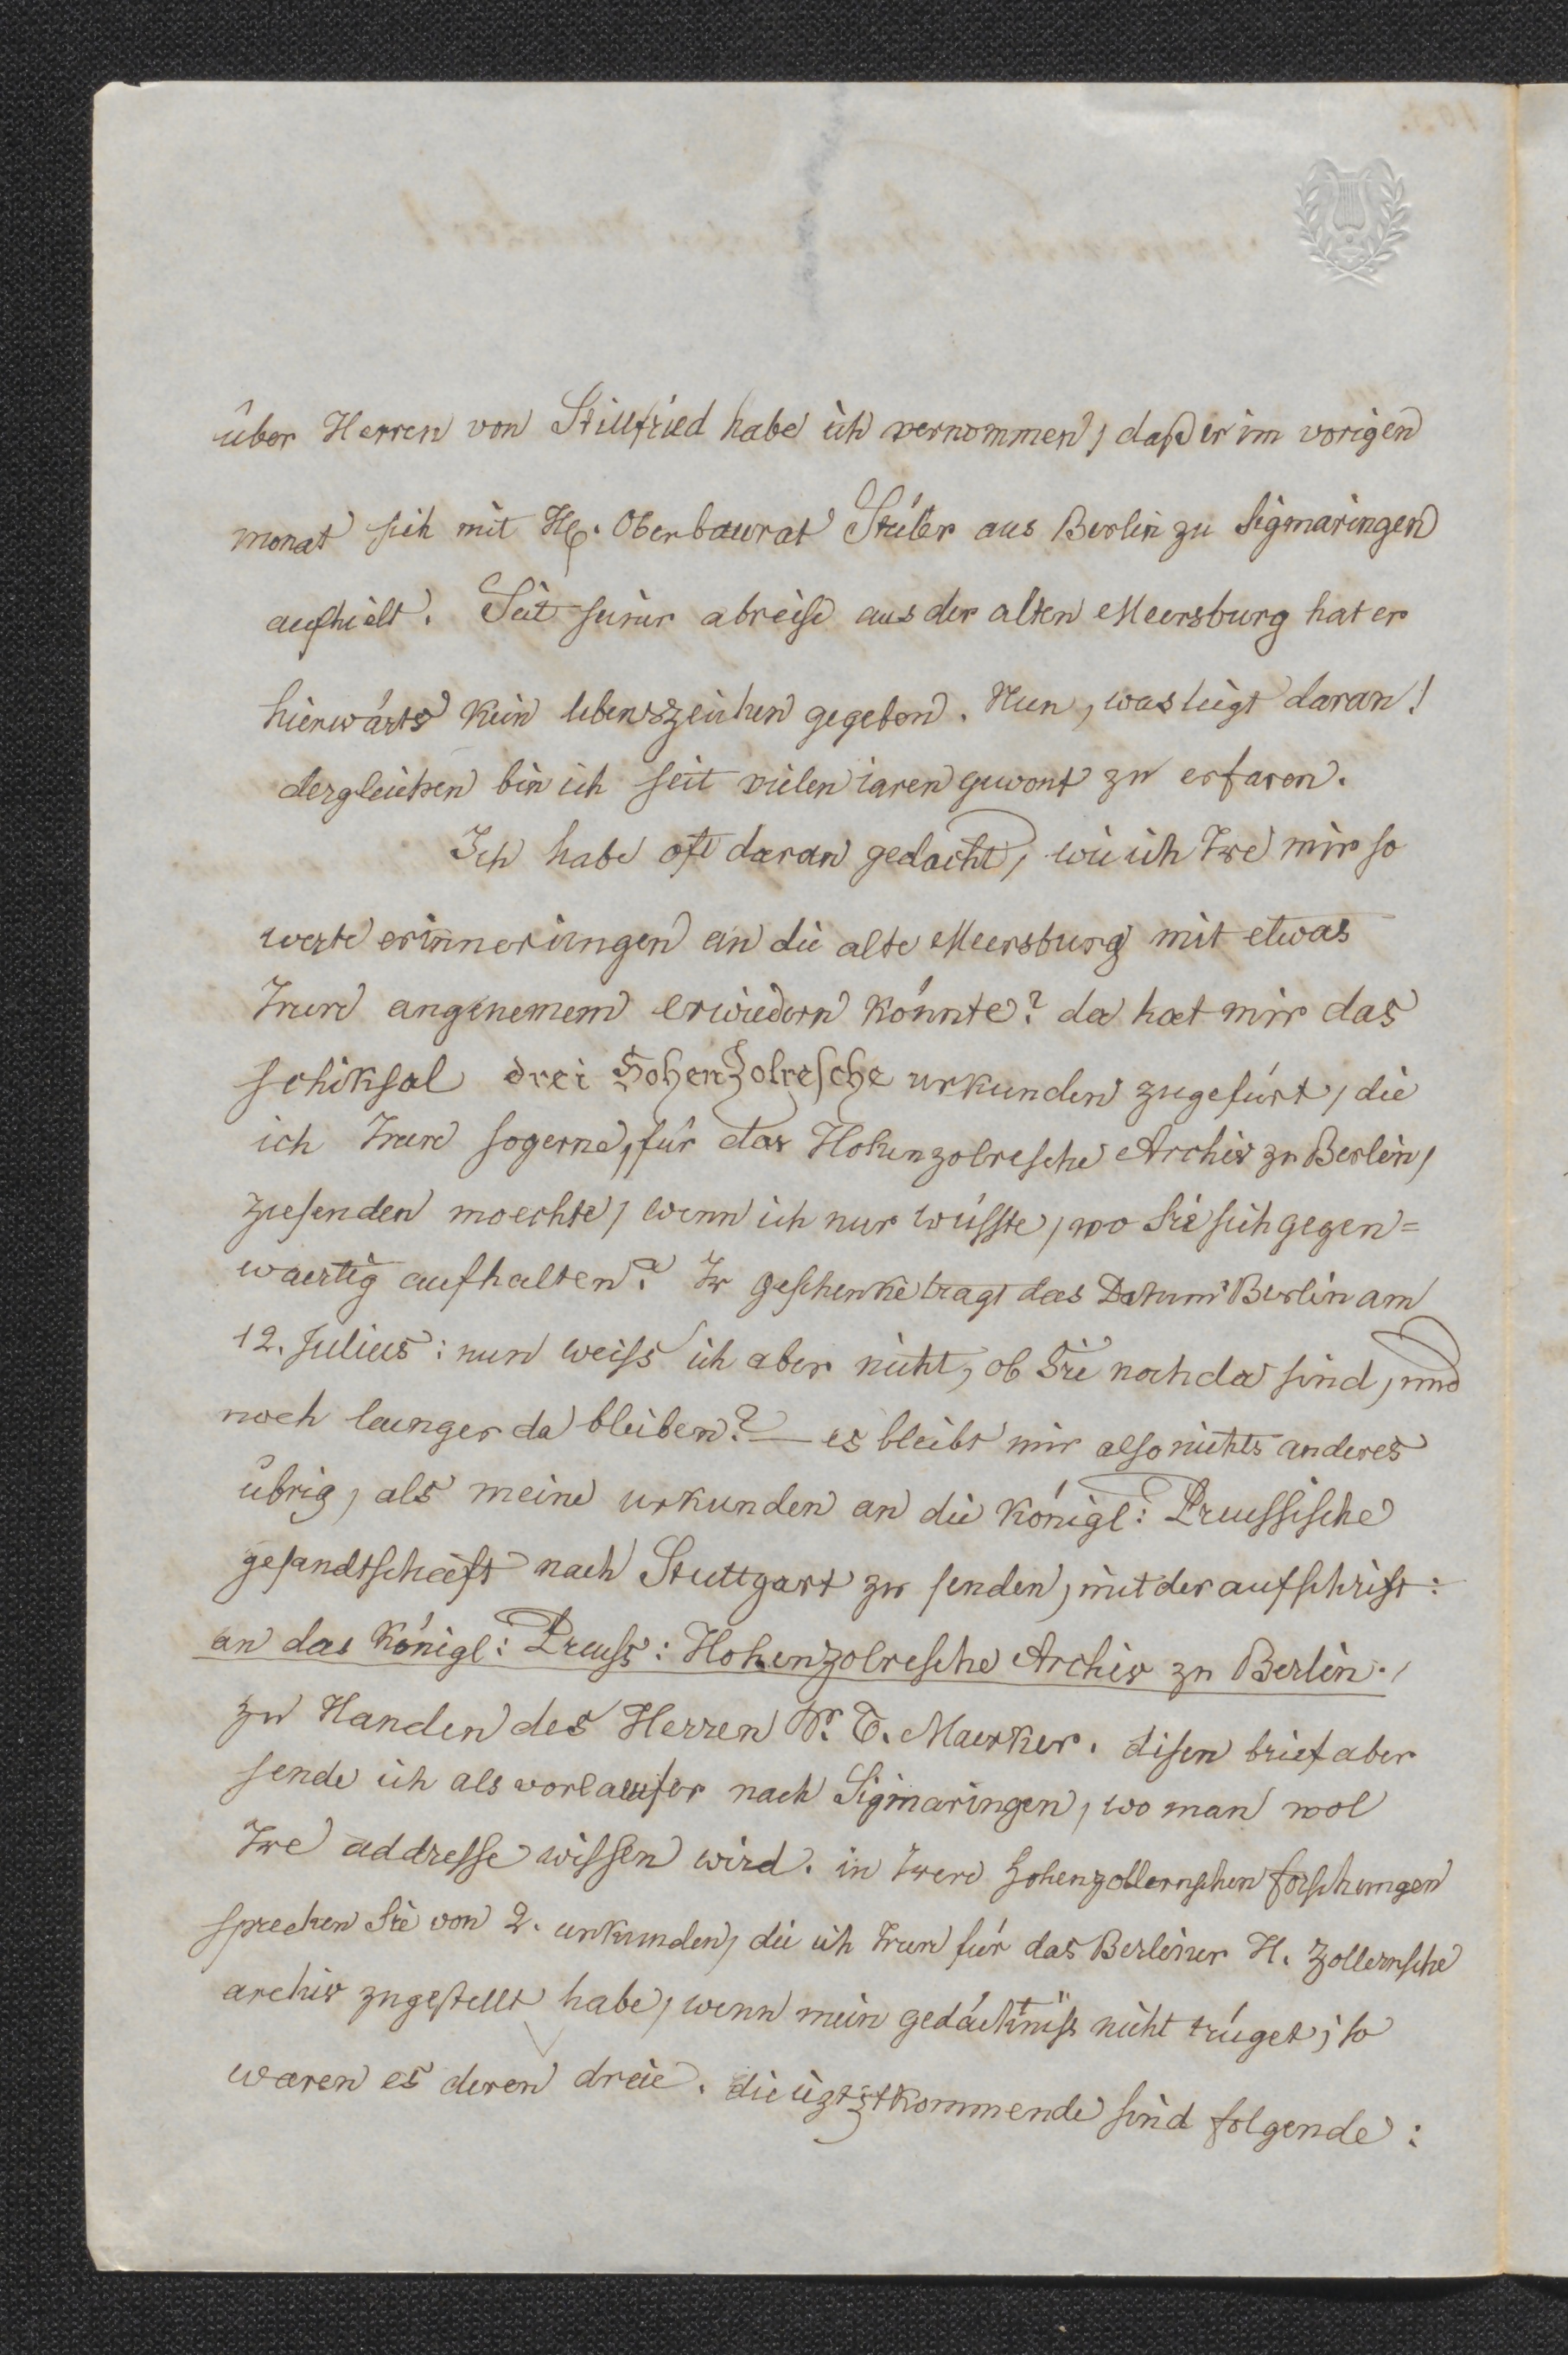 über Herren von Stillfried habe ich vernommen, daß er im vorigen
monat sich mit H. Oberbaurat Stüler aus Berlin zu Sigmaringen
aufhielt. Seit seiner abreise aus der alten Meersburg hat er
hierwärts kein lebenszeichen gegeben. Nun, was liegt daran!
dergleichen bin ich seit vielen iaren gewont zu erfaren.
Ich habe oft daran gedacht, wie ich Ire mir so
werte erinnerungen an die alte Meersburg mit etwas
Inen angenemem erwiedern könnte? da hat mir das
schiksal drei HohenZolresche urkunden zugefürt, die
ich Inen so gerne, für das Hohenzolresche Archiv zu Berlin,
zusenden moechte, wenn ich nur wüsste, wo Sie sich gegen=
waertig aufhalten? Ir geschenke tragt das Datum Berlin am
12. Julius: nun weiss ich aber nicht, ob Sie noch da sind, und
noch laenger da bleiben? — es bleibt mir also nichts anderes
übrig, als meine urkunden an die königl: Preussische
gesandtschaft nach Stuttgart zu senden, mit der aufschrift:
an das königl: Preuss: Hohenzolresche Archiv zu Berlin.,
zu Handen des Herren Dr. T. Maerker. disen brief aber
sende ich als vorlaeufer nach Sigmaringen, wo man wol
Ire addresse wissen wird. in Iren hohenzollernschen forschungen
sprechen Sie von 2. urkunden, die ich Inen für das Berliner H. Zollernsche
archiv zugestellt habe, wenn mein gedächtniss nicht trüget, so
waren es deren dreie. die kommende sind folgende: